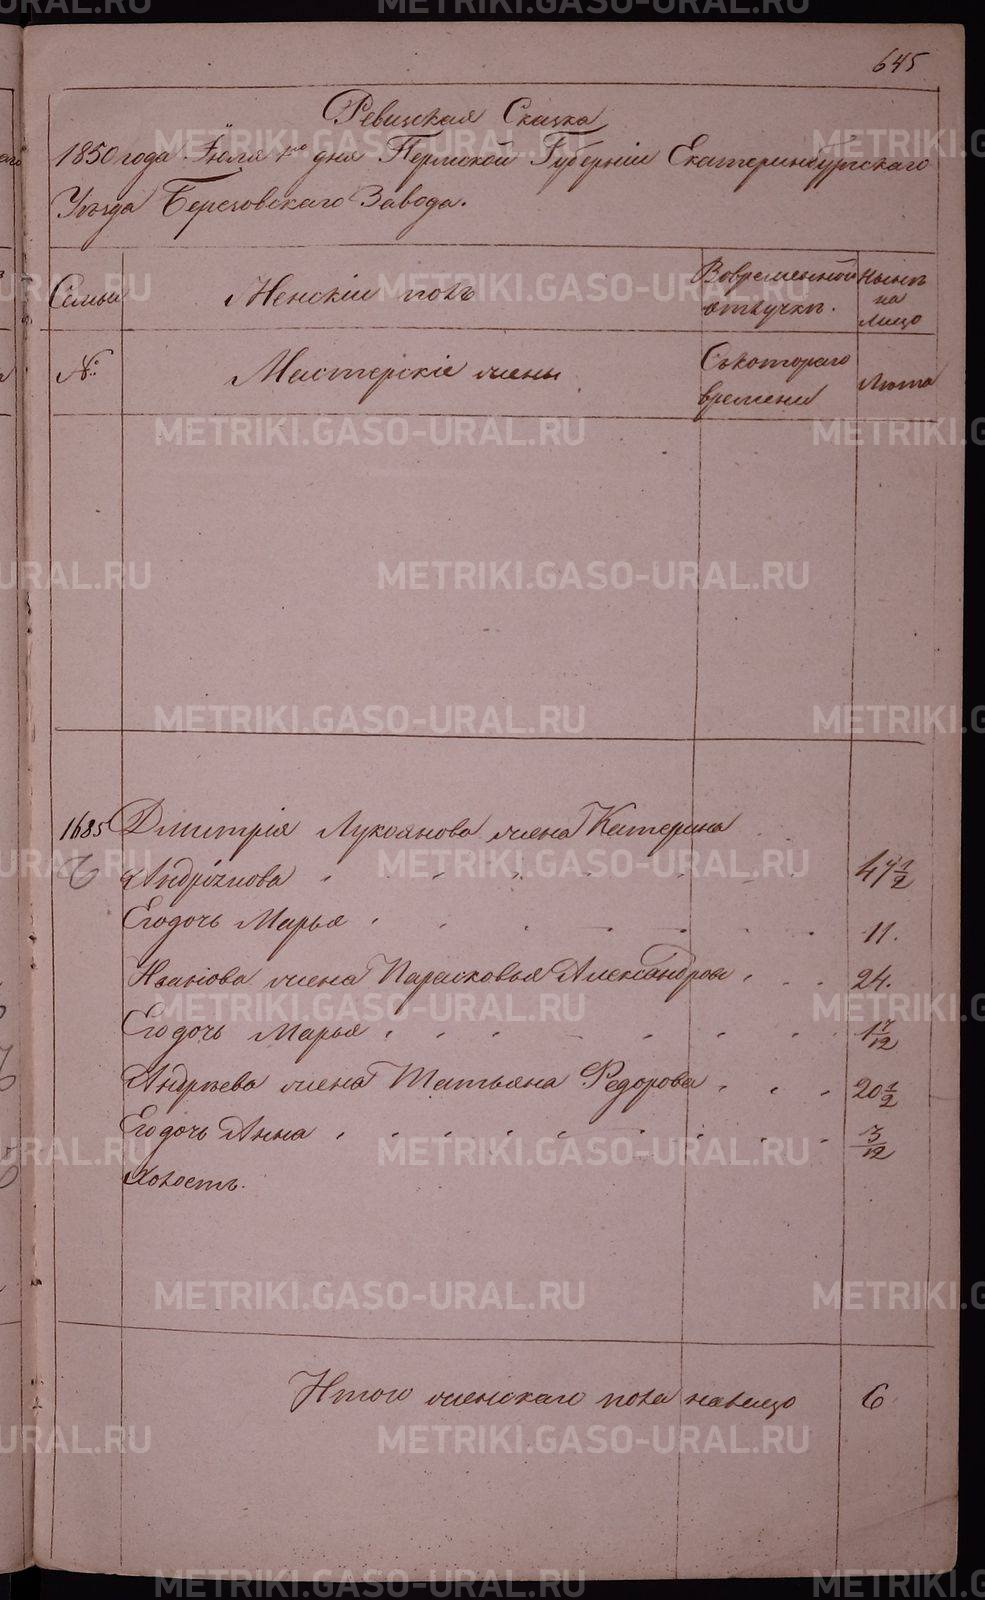 645
Ревизская Сказка
1850 года Июля 1го дня Пермской Губерніи Екатеринбургскаго
Уѣзда Березовскаго Завода.
Семьи
Женскій полъ
Вовременной отлучкѣ.
Нынѣ на лицо
№:
Мастерскіе жены
Съкотораго времени
Лѣта
1685 Дмитрія Лукоянова жена Катерина
6 Андріянова 47 1/2
Егодочь Марья 11.
Иванова жена Парасковья Александрова 24.
Егодочь Марья 1 7/12
Андрѣева жена Татьяна Федорова 20 1/2
Егодочь Анна 3/12
Холостъ.
Итого женскаго пола налицо 6
METRIKI.GASO-URAL.RU